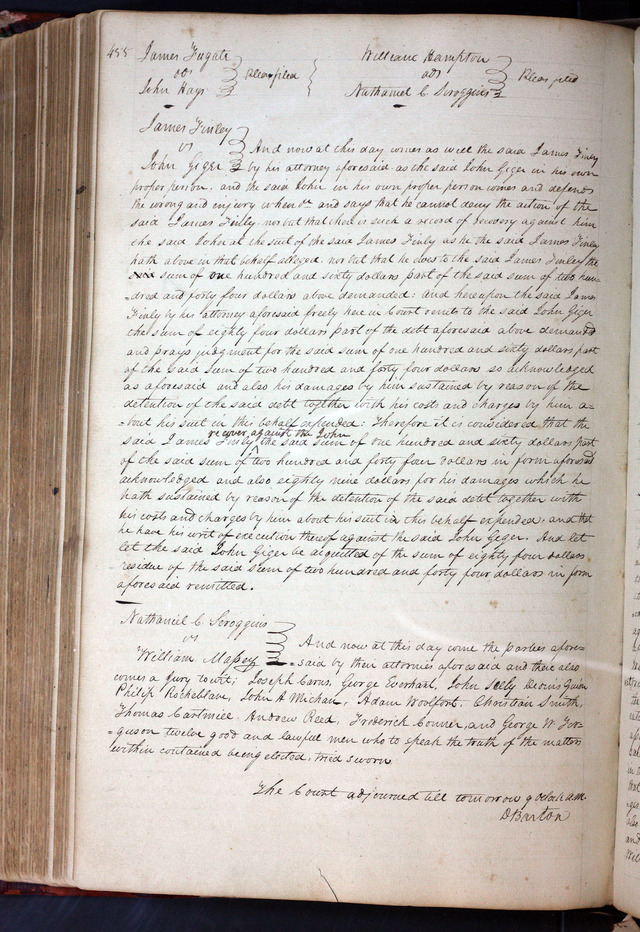 455 James Fugate
vs
John Hays
Pleas filed
William Hampton
ads
Nathaniel C Scroggins
Pleas filed
James Finley
vs
John Giger
And now at this day comes as well the said James Finly
by his attorney aforesaid as the said John Giger in his own
proper person, and the said John in his own proper person comes and defends
the wrong and injury when &c and says that he cannot deny the action of the
said James Finly nor but that there is such a record of recovery against him
the said John at the suit of the said James Finly as he the said James Finley
hath above in that behalf alleged. nor but that he owes to the said James Finley the
said sum of one hundred and sixty dollars part of the said sum of two hun-
-dred and forty four dollars above demanded: and hereupon the said James
Finly by his attorney aforesaid freely here in Court remits to the said John Giger
the sum of eighty four dollars part of the debt aforesaid above demanded
and prays judgment for the said sum of one hundred and sixty dollars part
of the said sum of two hundred and forty four dollars so acknowledged
as aforesaid and also his damages by him sustained by reason of the
detention of the said debt together with his costs and charges by him a-
-bout his suit in this behalf expended: Therefore it is considered that the
said James Finly recover against the John the said sum of one hundred and sixty dollars part
of the said sum of two hundred and forty four dollars in form aforesaid
acknowledged and also eighty nine dollars for his damages which he
hath sustained by reason of the detention of the said debt together with
his costs and charges by him about his suit in this behalf expended; and that
he have his writ of execution thereof against he said John Giger. And let
let the said John Giger be acquitted of the sum of eighty four dollars
residue of the said sum of two hundred and forty four dollars in form
aforesaid remitted.
Nathaniel C. Scroggins
vs
William Massey
And now at this day come the parties afore-
-said by their attornies aforesaid and there also
comes a Jury to wit; Joseph Carns, George Everhart, John Seely Dennis Quinn
Philip Rocheblave, John A Michau, Adam Woolfort, Christian Smith,
Thomas Cartmill, Andrew Reed, Frederick Conner, and George W. Fer-
-guson twelve good and lawful men who to speak the truth of the matters
within contained being elected, tried sworn
The Court adjourned till tomorrow 9 oclock a.m.
D Barton